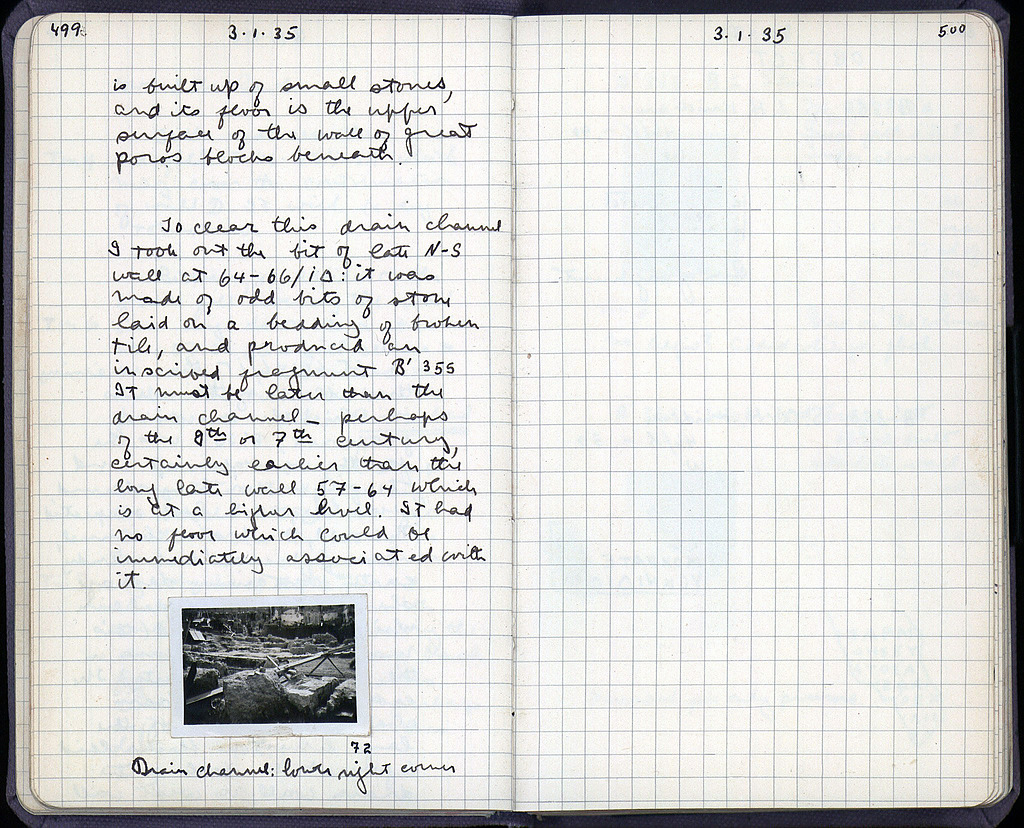 499
3·1·35
is built up of small stones,
and its floor is the upper
surface of the wall of great
poros blocks beneath.
To clear this drain channel
I took out the bit of late N-S
wall at 64-66/ΙΔ: it was
made of odd bits of stone
laid on a bedding of broken
tile, and produced an
inscribed fragment B' 355
It must be later than the
drain channel – perhaps
of the 8th or 7th century,
certainly earlier than the
long late wall 57-64 which
is at a higher level. It had
no floor which could be
immediately associated with
it.
72
Drain channel: lower right corner
3·1·35
500